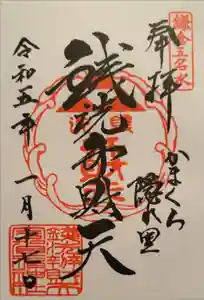 鎌倉五名水
奉拝
かまくら
隠れ里
銭洗弁財天
令和五年
一月
十七日